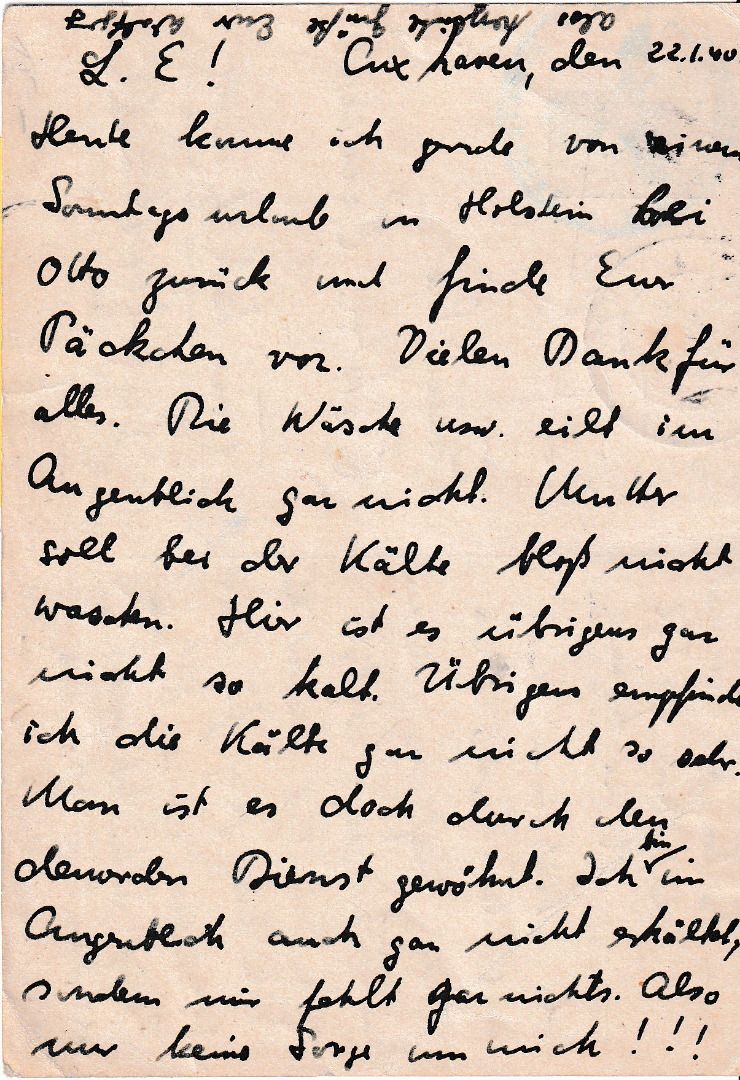 L. E! Cuxhaven, den 22.1.40.
Heute komme ich gerade von einem
Sonntagsurlaub in Holstein bei
Otto zurück und finde Eur
Päckchen vor. Vielen Dank für
alles. Die Wäsche usw. eilt im
Augenblick gar nicht. Mutter
soll bei der Kälte bloß nicht
waschen. Hier ist es übrigens gar
nicht so kalt. Übrigens empfinde
ich die Kälte gar nicht so sehr.
Man ist es doch durch den
Dienst gewöhnt. Ich bin im
Augenblick auch gar nicht erkältet,
sondern mir fehlt gar nichts. Also
nur keine Sorge um mich!!!
Also herzliche Grüße Euer